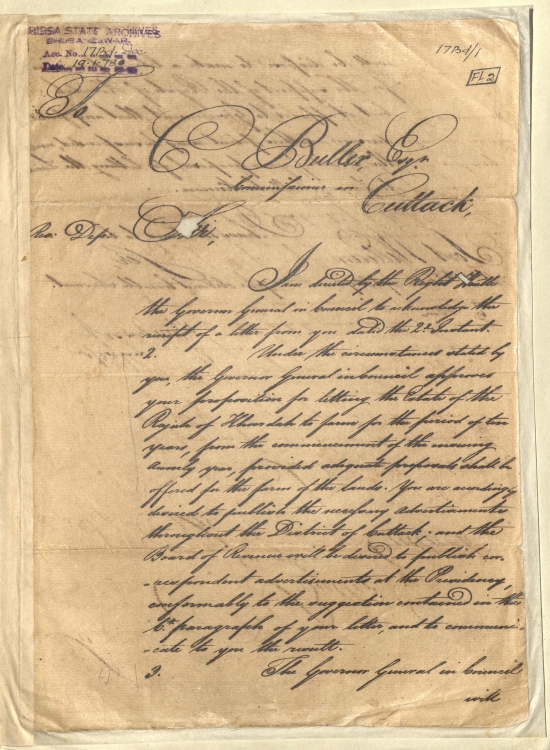 ORISSA STATE ARCHIVES
BHUBANESWAR
Acc. No. 17Bd/1
Date 19.1.780
17Bd/1
FL 2
To
C. Buller, Esqr
Commissioner in
Cuttack,
Rev: Dept.
Sir,
I am directed by the Right
the Governor General in Council to acknowledge the
receipt of a letter from you dated the 2d. Instant.
2. Under the circumstances stated by
you, the Governor General in Council approves
your proposition for letting the Estate of the
Rajah of Khoordah to farm for the period of ten
years, from the commencement of the ensuing
Aumly year, provided adequate proposals shall be
offered for the farm of the lands. You are accordingly
desired to publish the necessary advertisements
throughout the District of Cuttack, and the
Board of Revenue will be desired to publish cor-
-respondent advertisements at the Presidency,
conformably to the suggestion contained in the
6th. paragraph of your letter, and to communi-
-cate to you the result.
3. The Governor General in Council
will